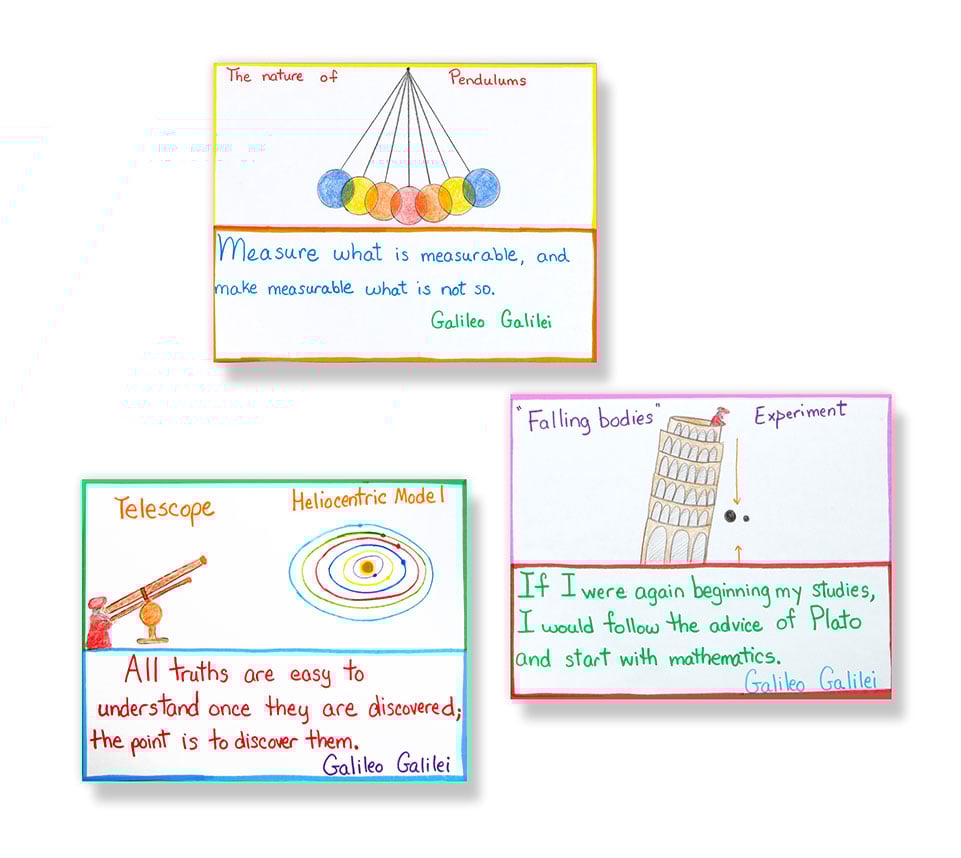 The nature of Pendulums
Measure what is measurable, and
make measurable what is not so.
Galileo Galilei
"Falling bodies" Experiment
If I were again beginning my studies,
I would follow the advice of Plato
and start with mathematics.
Galileo Galilei
Telescope
Heliocentric Model
All truths are easy to
understand once they are discovered;
the point is to discover them.
Galileo Galilei